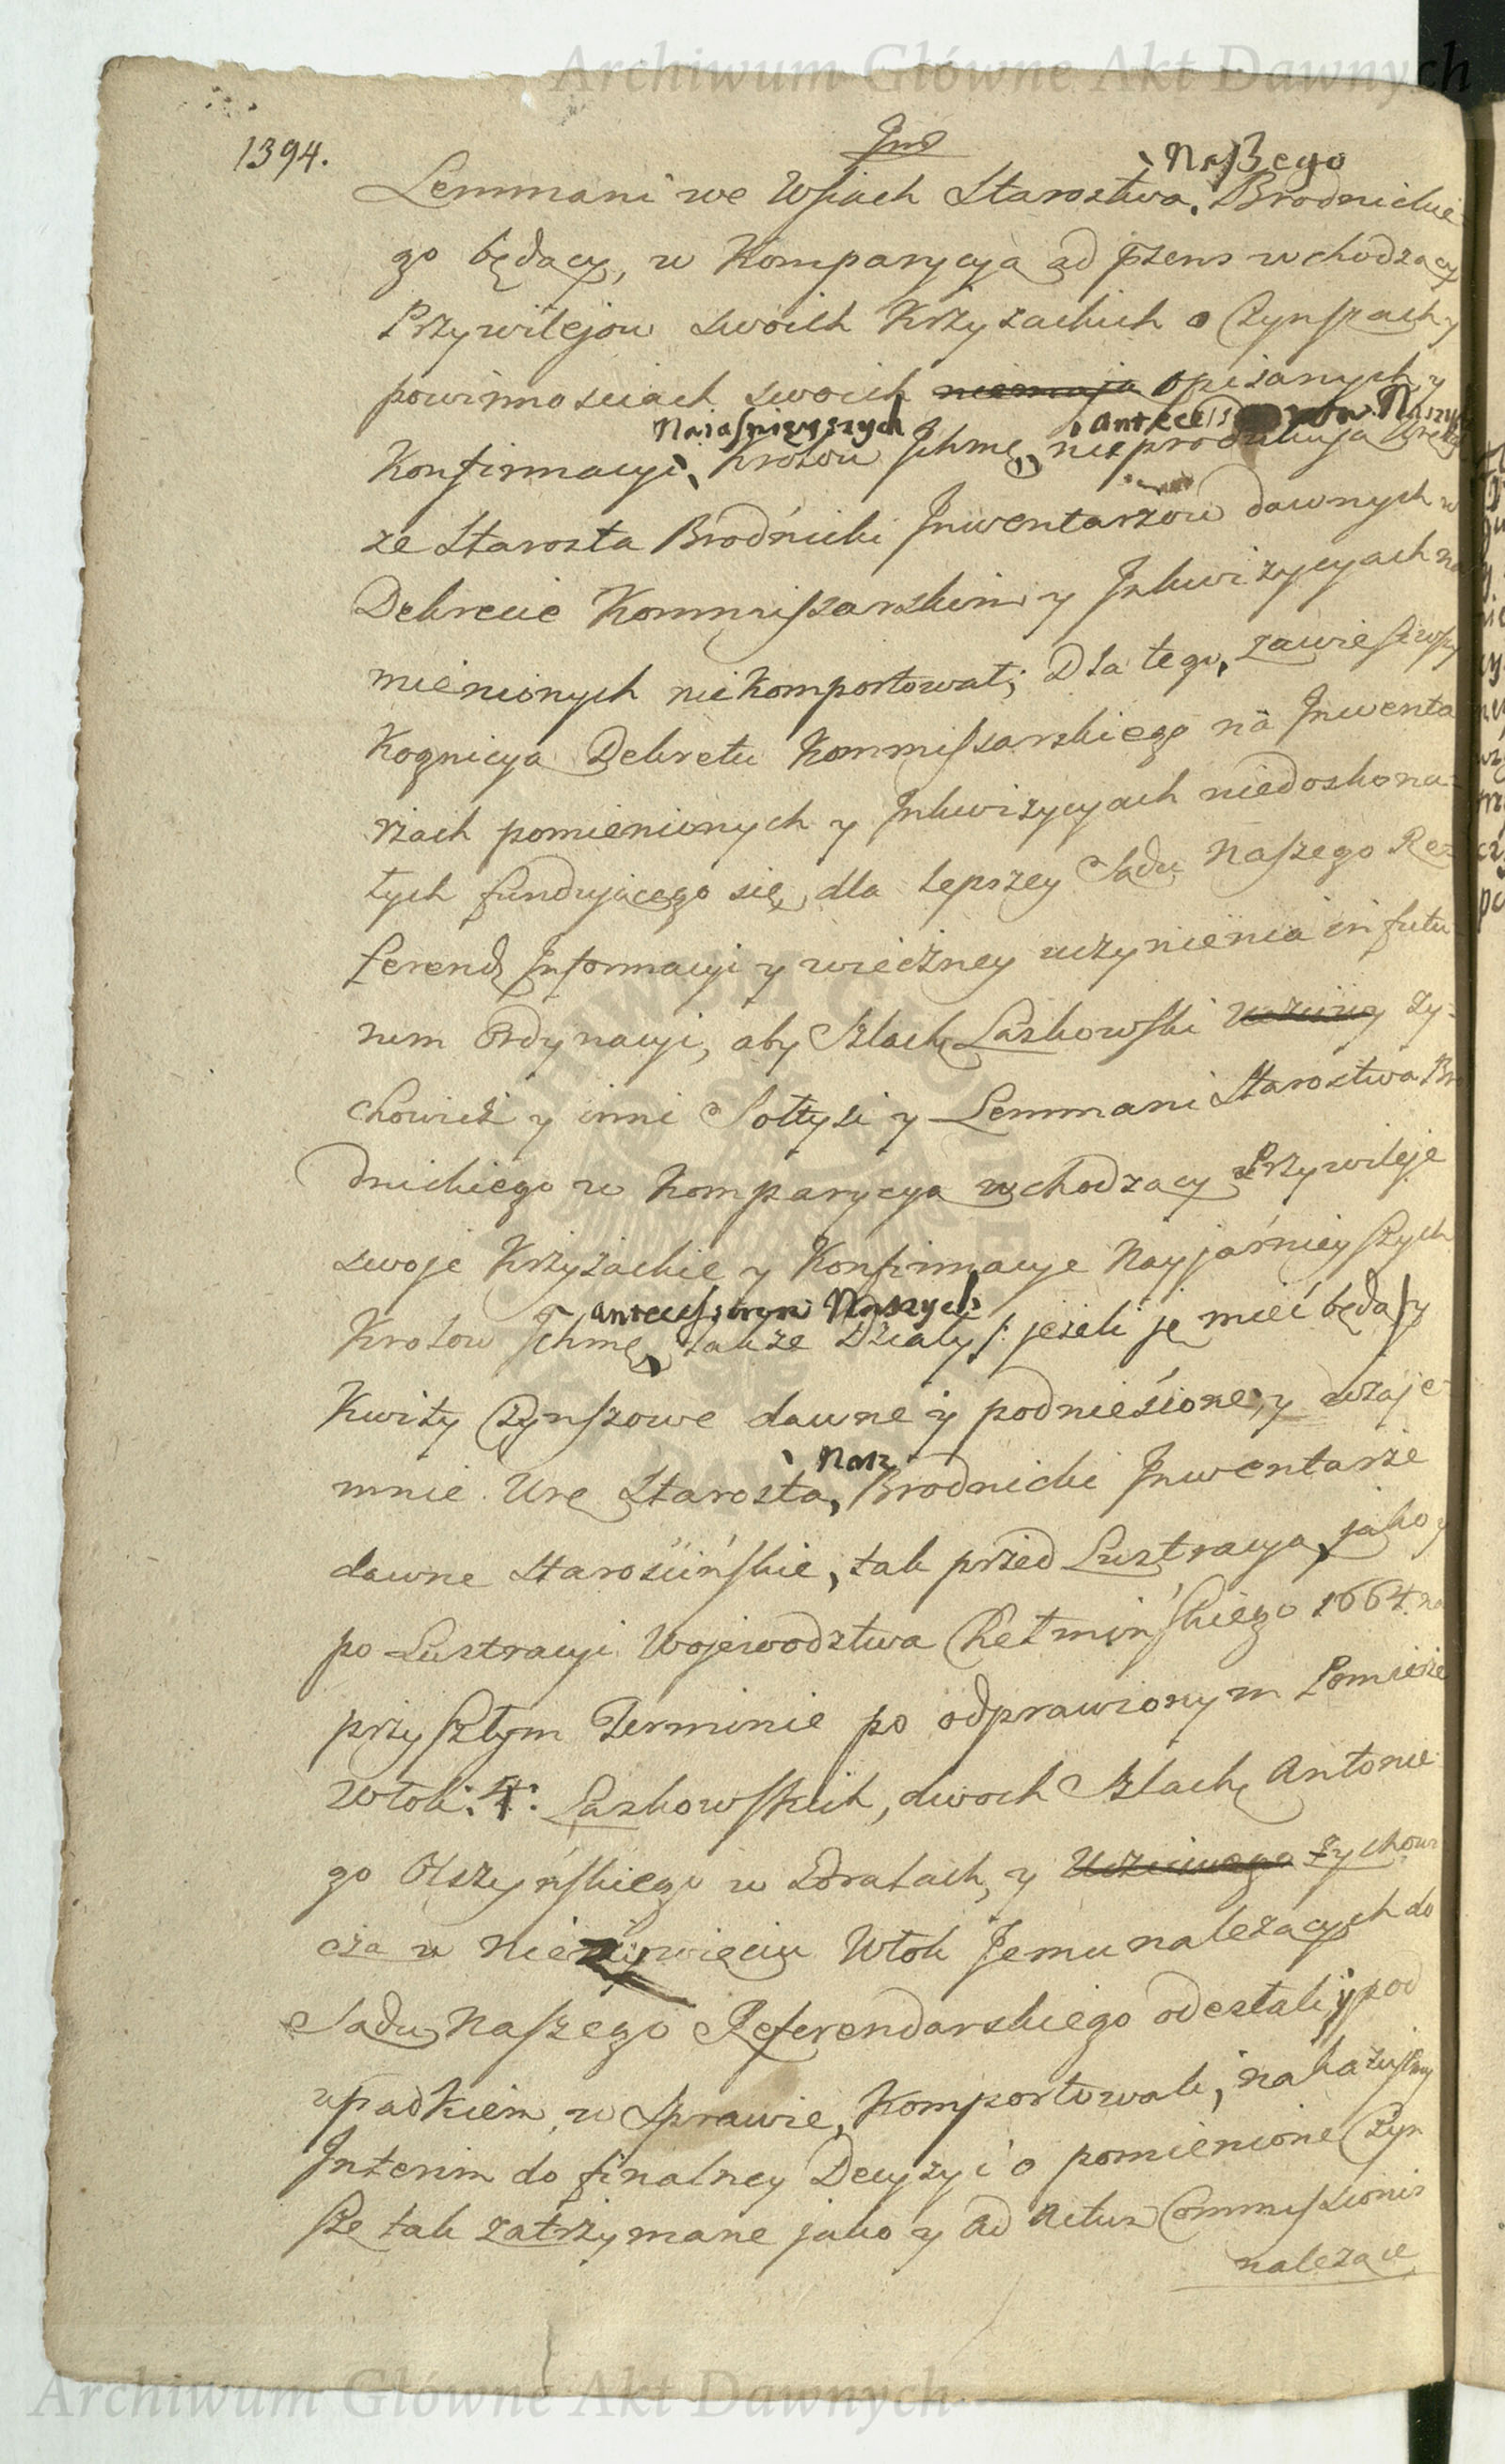 Archiwum Główne Akt Dawnych
1394.
Naszego
Lemmani we Wsiach Starostwa Brodnickie
go będący, w Komparycyą ad przens wchodzący
Przywilejow swoich Krzyżackich o Czynszach y
powinnosciach swoich niemaią opisanych y
Naiaśnieyszych Antecessorow Naszych
Konfirmacyi Krolow Ichmę, nieprodukuią
ze Starosta Brodnicki Inwentarzow dawnych w
Dekrecie Kommissarskim y Inkwizycyach na
mienionych nie Komportował; Dla tego, zawiesiwszy
Kognicyą Dekretu Kommissarskiego na Inwenta
rzach pomienionych y Inkwizycyach niedoskona-
łych fundującego się, dla lepszey Sądu Naszego Re-
ferend Informacyi y wieczney uczynienia in futu
rum Ordynacyi, aby Szlach Laskowski Zy-
chowicz y inni Sołtysi y Lemmani Starostwa Bro
dnickiego w Komparycyą wchodzący Przywileje
swoje Krzyżackie y Konfirmacye Nayjaśnieyszych
Antecessorow Naszych
Krolow Ichmę, także Działy /: jeżeli je mieć będą/ y
Kwity Czynszowe dawne y podniesione, y wzaje-
Nasz
mnie Urę Starosta, Brodnicki Inwentarze
dawne Starościńskie, tak przed Lustracyą, jako y
po Lustracyi Wojewodztwa Chełmińskiego 1664. na
przyszłym Terminie po odprawionym Pomierze
Włok: 4: Laskowskich, dwoch Szlach Antonie
go Olszyńskiego w Zdratach, y Uczciwego Zychowi
cza w Więciu Włok Jemu należących do
Sądu Naszego Referendarskiego odesłali y pod
upadkiem w Sprawie, Komportowali, nakazujemy
Interim do finalney Decyzyi o pomienione Czyn
sze tak zatrzymane jako y ad Actum Commissionis
należące
Archiwum Główne Akt Dawnych